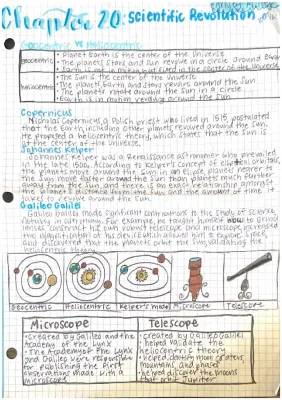 Chapter 20: Scientific Revolution
Geocentric vs Heliocentric
Geocentric
• Planet Earth is the center of the Universe
• The planets, stars and sun revolve in a circle around Earth
• Earth is not in motion but fixed in the center of the Universe
heliocentric
• The Sun is the center of the Universe
• The planets, Earth and stars revolve around the Sun
• The planets rotate around the Sun in a circle
• Earth is in motion revolving around the sun
Copernicus
Nicolas Copernicus, a Polish priest who lived in 1515, postulated
that the Earth, including other planets revolved around the sun.
He proposed a heliocentric theory, which states that the sun is
at the center of the universe.
Johannes Kepler
Johannes Kepler was a Renaissance astronomer who prevailed
in the late 1500. According to Kepler's concept of elliptical orbitals,
the planets move around the sun in an ellipse. planet nearer to
the sun move faster around the sun than planets much further
away from the sun, and there is an exact relationship amongst
the planet's distance from the sun and the amount of time it
takes to revolve around the sun.
Galileo Galilei
Galileo Galilei made significant contributions to the study of science,
notably in astronomy. For example, he taught himself how to grind
lenses, construct his own robust telescope and microscope, increased
the magnification of his device which allowed him to explore space,
and discovered that the planets orbit the sun, validating the
heliocentric theory.
Geocentric Heliocentric Kepler's model Microscope Telescope
Microscope Telescope
• Created by Galileo and the
Academy of the Lynx
• The Academy of the Lynx
and Galileo were responsible
for publishing the first
observations made with a
microscope
• Created by Galileo Galilei
• helped validate the
heliocentric theory
• helped identify moon craters,
mountains, and phases
• helped discover the moons
that orbit Jupiter